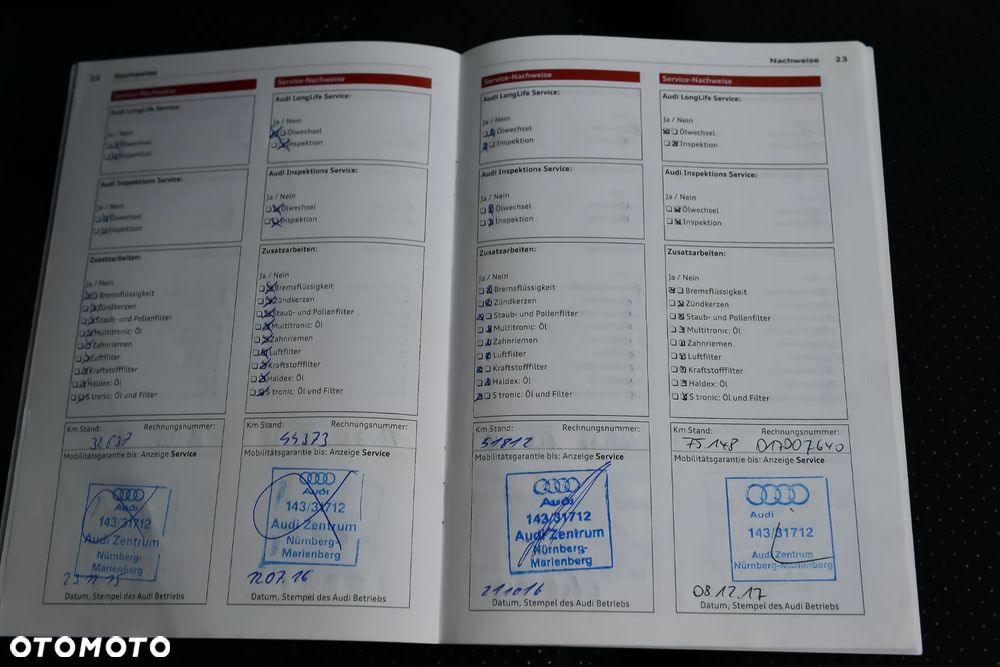 22 Nachweise
Service-Nachweise
Audi LongLife Service:
Ja / Nein
Ölwechsel
Inspektion
Audi Inspektions Service:
Ja / Nein
Ölwechsel
Inspektion
Zusatzarbeiten:
Ja / Nein
Bremsflüssigkeit
Zündkerzen
Staub- und Pollenfilter
Multitronic: Öl
Zahnriemen
Luftfilter
Kraftstofffilter
Haldex: Öl
S tronic: Öl und Filter
Km Stand: Rechnungsnummer:
32637
Mobilitätsgarantie bis: Anzeige Service
Audi
143/31712
Audi Zentrum
Nürnberg-
Marienberg
Datum, Stempel des Audi Betriebs
Service-Nachweise
Audi LongLife Service:
Ja / Nein
Ölwechsel
Inspektion
Audi Inspektions Service:
Ja / Nein
Ölwechsel
Inspektion
Zusatzarbeiten:
Ja / Nein
Bremsflüssigkeit
Zündkerzen
Staub- und Pollenfilter
Multitronic: Öl
Zahnriemen
Luftfilter
Kraftstofffilter
Haldex: Öl
S tronic: Öl und Filter
Km Stand: Rechnungsnummer:
44373
Mobilitätsgarantie bis: Anzeige Service
Audi
143/31712
Audi Zentrum
Nürnberg-
Marienberg
12.07.16
Datum, Stempel des Audi Betriebs
Nachweise 23
Service-Nachweise
Audi LongLife Service:
Ja / Nein
Ölwechsel
Inspektion
Audi Inspektions Service:
Ja / Nein
Ölwechsel
Inspektion
Zusatzarbeiten:
Ja / Nein
Bremsflüssigkeit
Zündkerzen
Staub- und Pollenfilter
Multitronic: Öl
Zahnriemen
Luftfilter
Kraftstofffilter
Haldex: Öl
S tronic: Öl und Filter
Km Stand: Rechnungsnummer:
51812
Mobilitätsgarantie bis: Anzeige Service
Audi
143/31712
Audi Zentrum
Nürnberg-
Marienberg
211016
Datum, Stempel des Audi Betriebs
Service-Nachweise
Audi LongLife Service:
Ja / Nein
Ölwechsel
Inspektion
Audi Inspektions Service:
Ja / Nein
Ölwechsel
Inspektion
Zusatzarbeiten:
Ja / Nein
Bremsflüssigkeit
Zündkerzen
Staub- und Pollenfilter
Multitronic: Öl
Zahnriemen
Luftfilter
Kraftstofffilter
Haldex: Öl
S tronic: Öl und Filter
Km Stand: Rechnungsnummer:
75148 D17D07640
Mobilitätsgarantie bis: Anzeige Service
Audi
143/31712
Audi Zentrum
Nürnberg-Marienberg
08.12.17
Datum, Stempel des Audi Betriebs
OTOMOTO